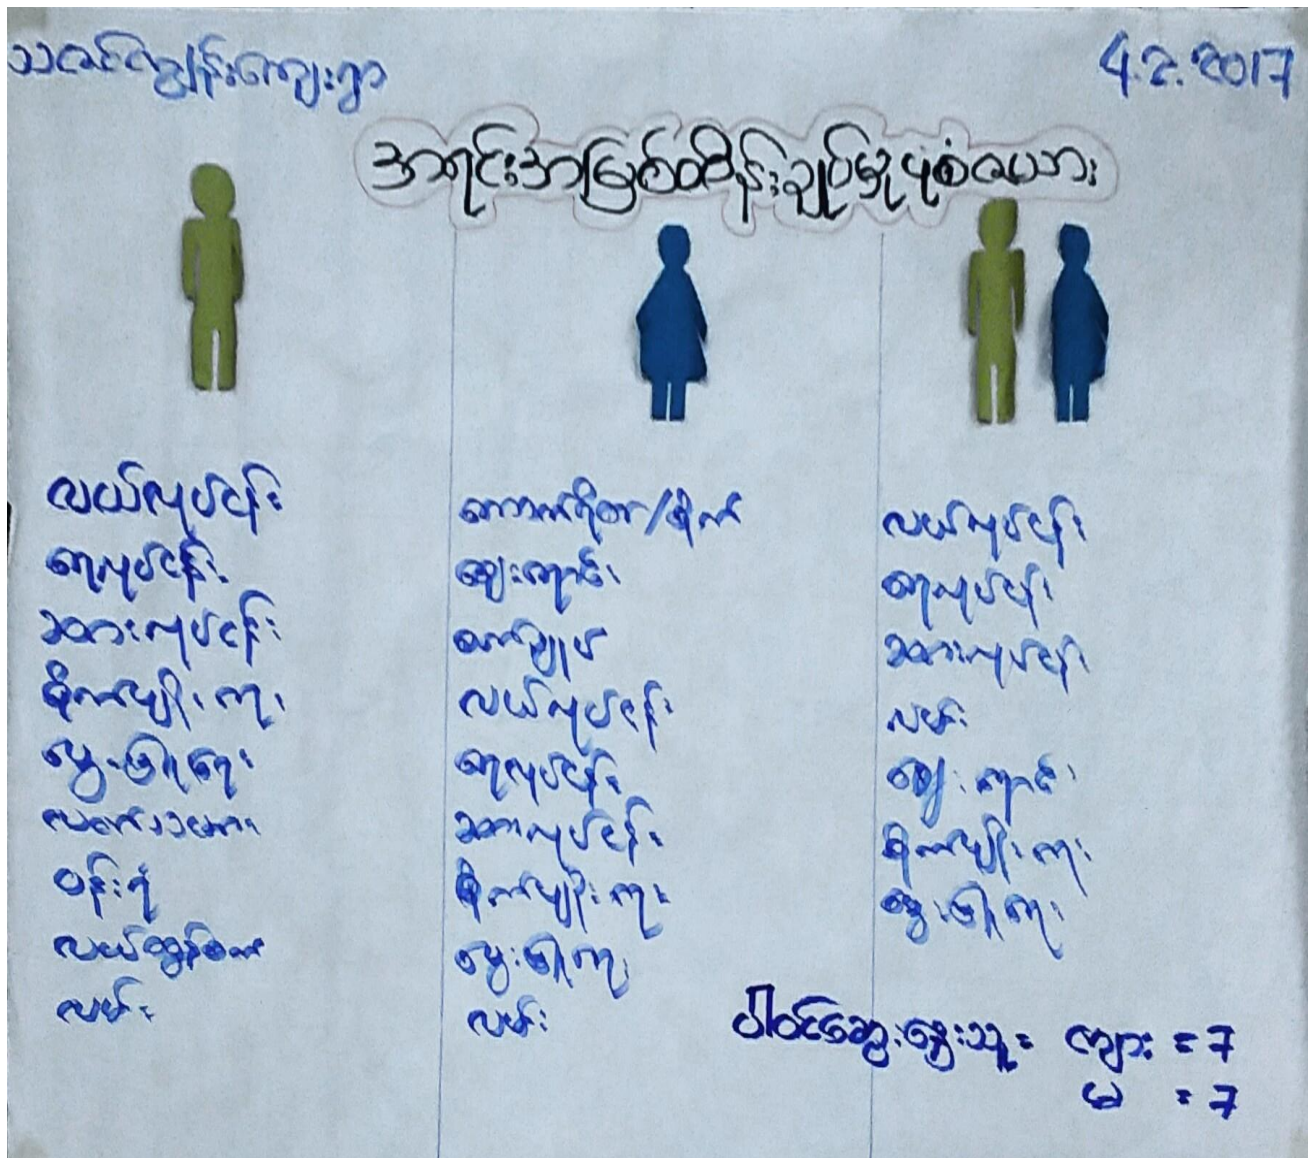 သဇင်ကျွန်းကျေးရွာ
4.2.2017
အရင်းအမြစ်ထိန်းချုပ်မှုပုံစံဇယား
လယ်လုပ်ငန်း
ရေလုပ်ငန်း
ဆားလုပ်ငန်း
စိုက်ပျိုးရေး
မွေးမြူရေး
လက်သမား
ပန်းရံ
လယ်ထွန်စက်
လမ်း
ကောက်စိုက်
ဈေးရောင်း
စက်ချုပ်
လယ်လုပ်ငန်း
ရေလုပ်ငန်း
ဆားလုပ်ငန်း
စိုက်ပျိုးရေး
မွေးမြူရေး
လမ်း
လယ်လုပ်ငန်း
ရေလုပ်ငန်း
ဆားလုပ်ငန်း
လမ်း
ဈေးရောင်း
စိုက်ပျိုးရေး
မွေးမြူရေး
ပါဝင်ဆွေးနွေးသူ = ကျား = 7
မ = 7